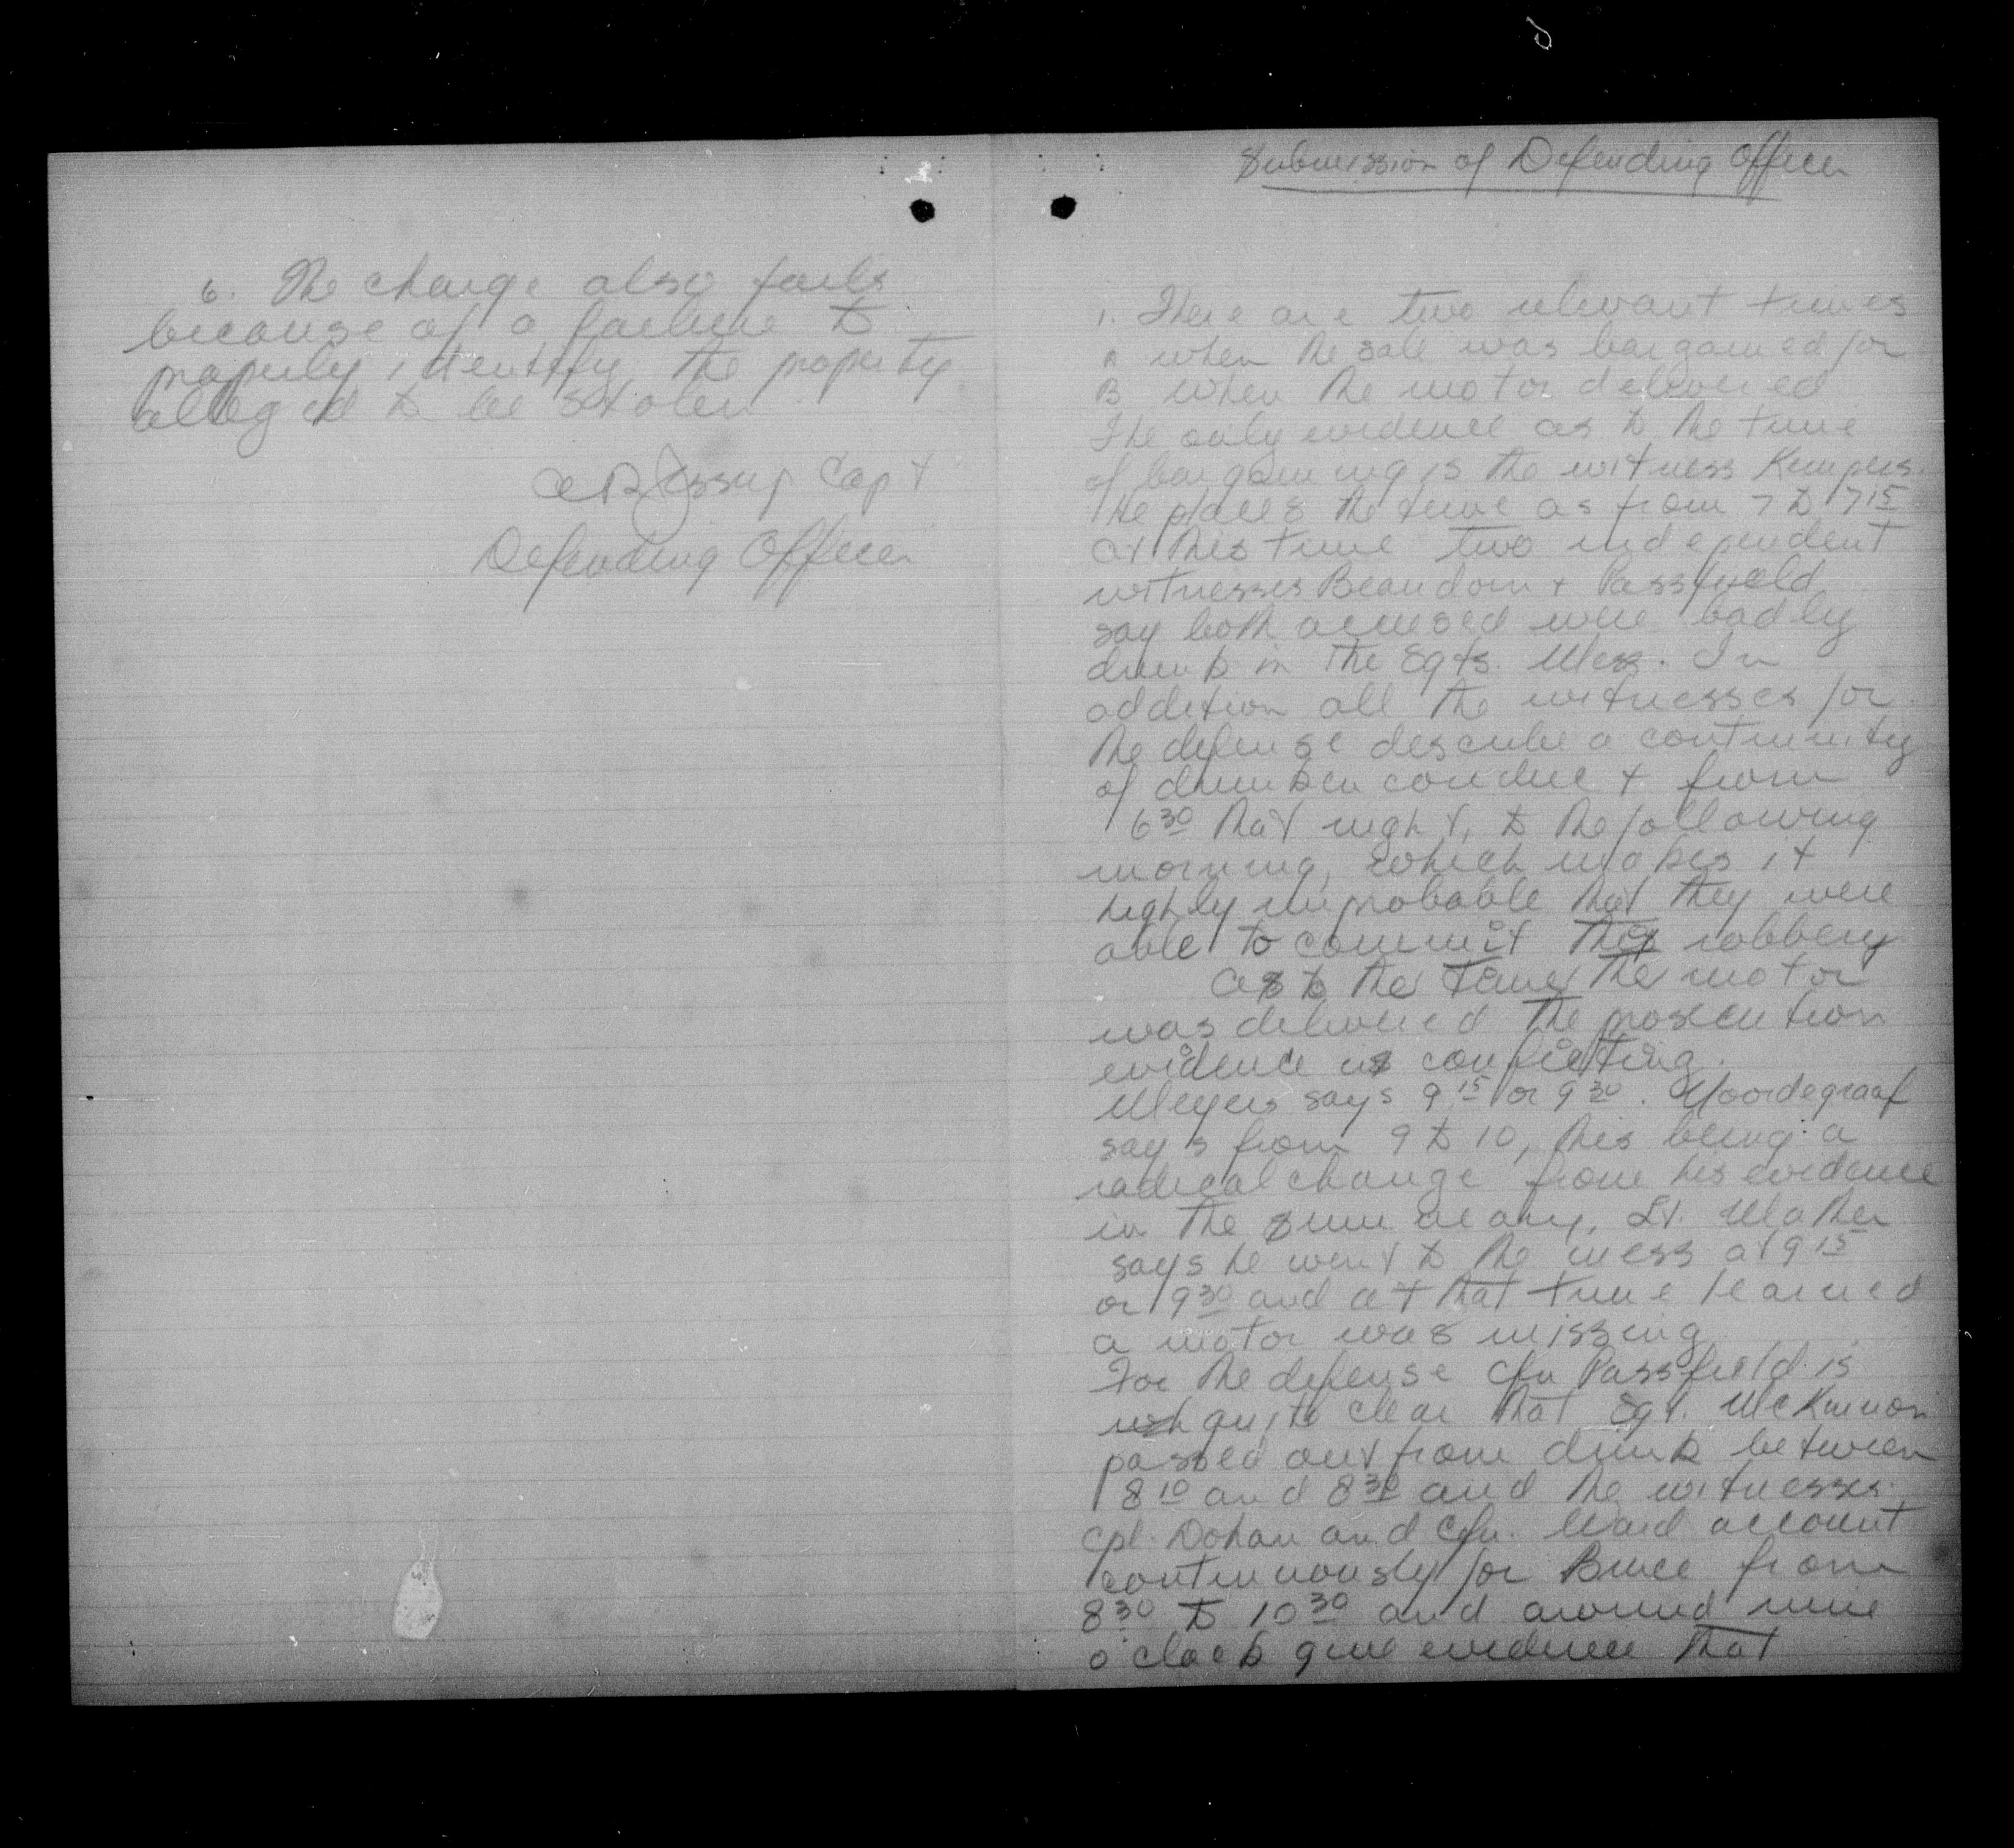 6. The charge also fails
because of a failure to
properly identify the property
alleged to be stolen
Capt
Defending Officer
Submission of Defending Officer
1. There are two relevant times
A when the sale was bargained for
B when the motor delivered
The only evidence as to the time
of bargaining is the witness Kempers.
He places the time as from 7 to 7 15
At this time two independent
witnesses Beaudoin + Passfield
say both accused were badly
drunk in the Sgts. Mess. In
addition all the witnesses for
the defense describe a continuity
of drunken conduct from
6 30 that night, to the following
morning, which makes it
highly improbable that they were
able to commit this robbery
As to the time the motor
was delivered the prosecution
evidence is conflicting.
Meyers says 9 15 or 9 30. Noordegraaf
says from 9 to 10, this being a
radical change from his evidence
in the summary, Lt. Mather
says he went to the mess at 9 15
or 9 30 and at that time learned
a motor was missing
For the defense Cfn Passfield is
quite clear that Sgt. McKinnon
passed out from drink between
8 10 and 8 30 and the witnesses
Cpl. Dohan and Cfn. Ward account
continuously for Bruce from
8 30 to 10 30 and around nine
o'clock give evidence that